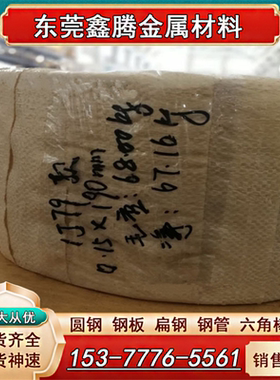 东莞鑫腾金属材料
1J79 软
0.15×190mm
毛重:68.00kg
净:67.16kg
大从优
圆钢 钢板 扁钢 钢管 六角棒
货齐全
销售
货神速
153-7776-5561